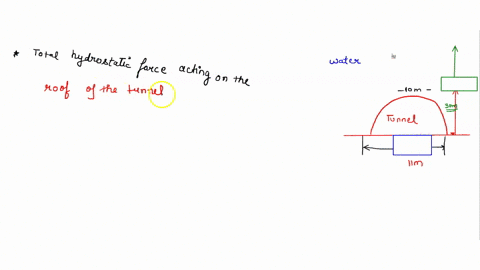 * Total hydrostatic force acting on the
roof of the tunnel
water
10m
Tunnel
11m